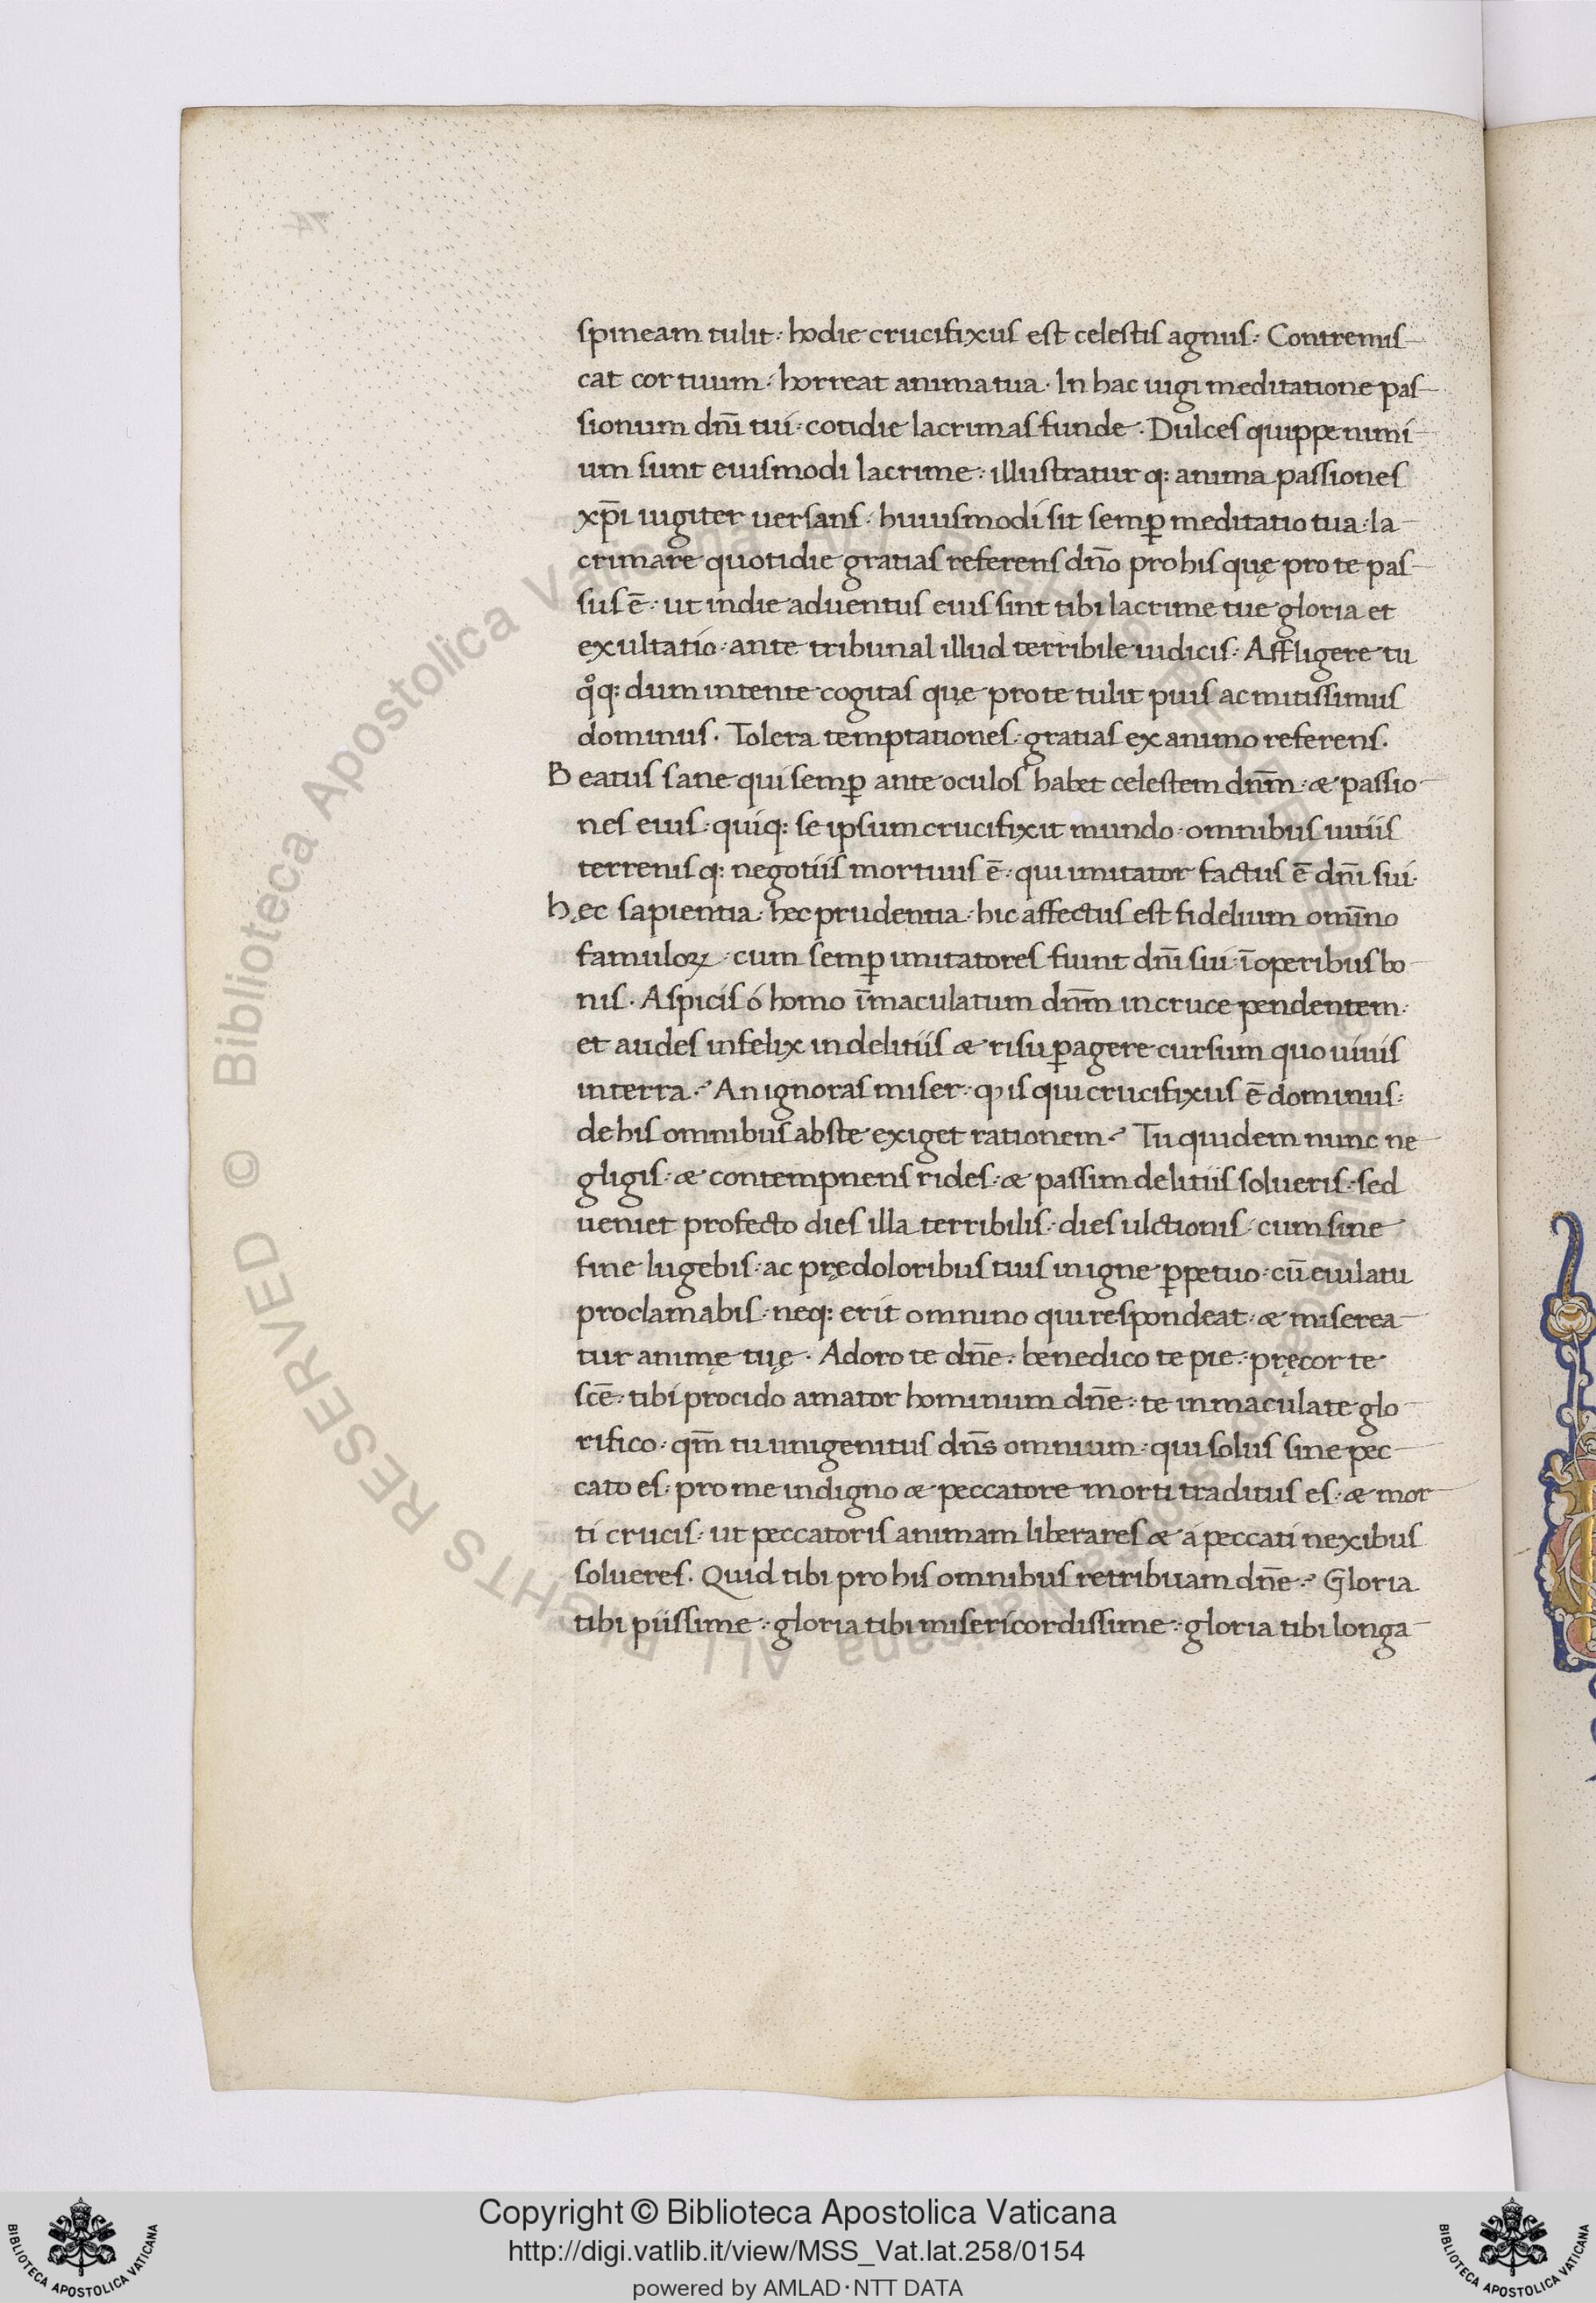 spineam tulit· hodie crucifixus est celestis agnus· Contremis-
cat cor tuum· horreat anima tua· In hac iugi meditatione pas-
sionum dn̄i tui· cotidie lacrimas funde· Dulces quippe nimi-
um sunt eiusmodi lacrime· illustratur q: anima passiones
xp̄i iugiter uersans· huiusmodi sit semꝑ meditatio tua· la-
crimare quotidie gratias referens dn̄o pro his quę pro te pas-
sus ē· ut in die aduentus eius sint tibi lacrime tue gloria et
exultatio· ante tribunal illud terribile iudicis· Affligere tu
qͦq: dum intente cogitas quę pro te tulit pius ac mitissimus
dominus· Tolera temptationes· gratias ex animo referens·
Beatus sane qui semꝑ ante oculos habet celestem dn̄m· & passio-
nes eius· quiq: se ipsum crucifixit mundo· omnibus uitiis
terrenisq: negotiis mortuus ē· qui imitator factus ē dn̄i sui·
hęc sapientia· hec prudentia· hic affectus est fidelium omīno
famuloꝝ· cum semꝑ imitatores fiunt dn̄i sui· ī operibus bo-
nis· Aspicis ó homo īmaculatum dn̄m in cruce pendentem·
et audes infelix in delitiis & risu ꝑagere cursum quo uiuis
in terra? An ignoras miser· ꝙ is qui crucifixus ē dominus·
de his omnibus abste exiget rationem? Tu quidem nunc ne-
gligis· & contempnens rides· & passim delitiis solueris· sed
ueniet profecto dies illa terribilis· dies ulctionis· cum sine
fine lugebis· ac prę doloribus tuis in igne ꝑpetuo· cū eiulatu
proclamabis· neq: erit omnino qui respondeat· & miserea-
tur animę tuę· Adoro te dn̄e· benedico te pie· pręcor te
scē· tibi procido amator hominum dn̄e· te inmaculate glo-
rifico· qm̄ tu unigenitus dn̄s omnium· qui solus sine pec-
cato es· pro me indigno & peccatore morti traditus es· & mor-
ti crucis· ut peccatoris animam liberares & á peccati nexibus
solueres· Quid tibi pro his omnibus retribuam dn̄e? Gloria
tibi piissime· gloria tibi misericordissime· gloria tibi longa-
© Biblioteca Apostolica Vaticana
ALL RIGHTS RESERVED
Copyright © Biblioteca Apostolica Vaticana
http://digi.vatlib.it/view/MSS_Vat.lat.258/0154
powered by AMLAD·NTT DATA
BIBLIOTECA APOSTOLICA VATICANA
BIBLIOTECA APOSTOLICA VATICANA